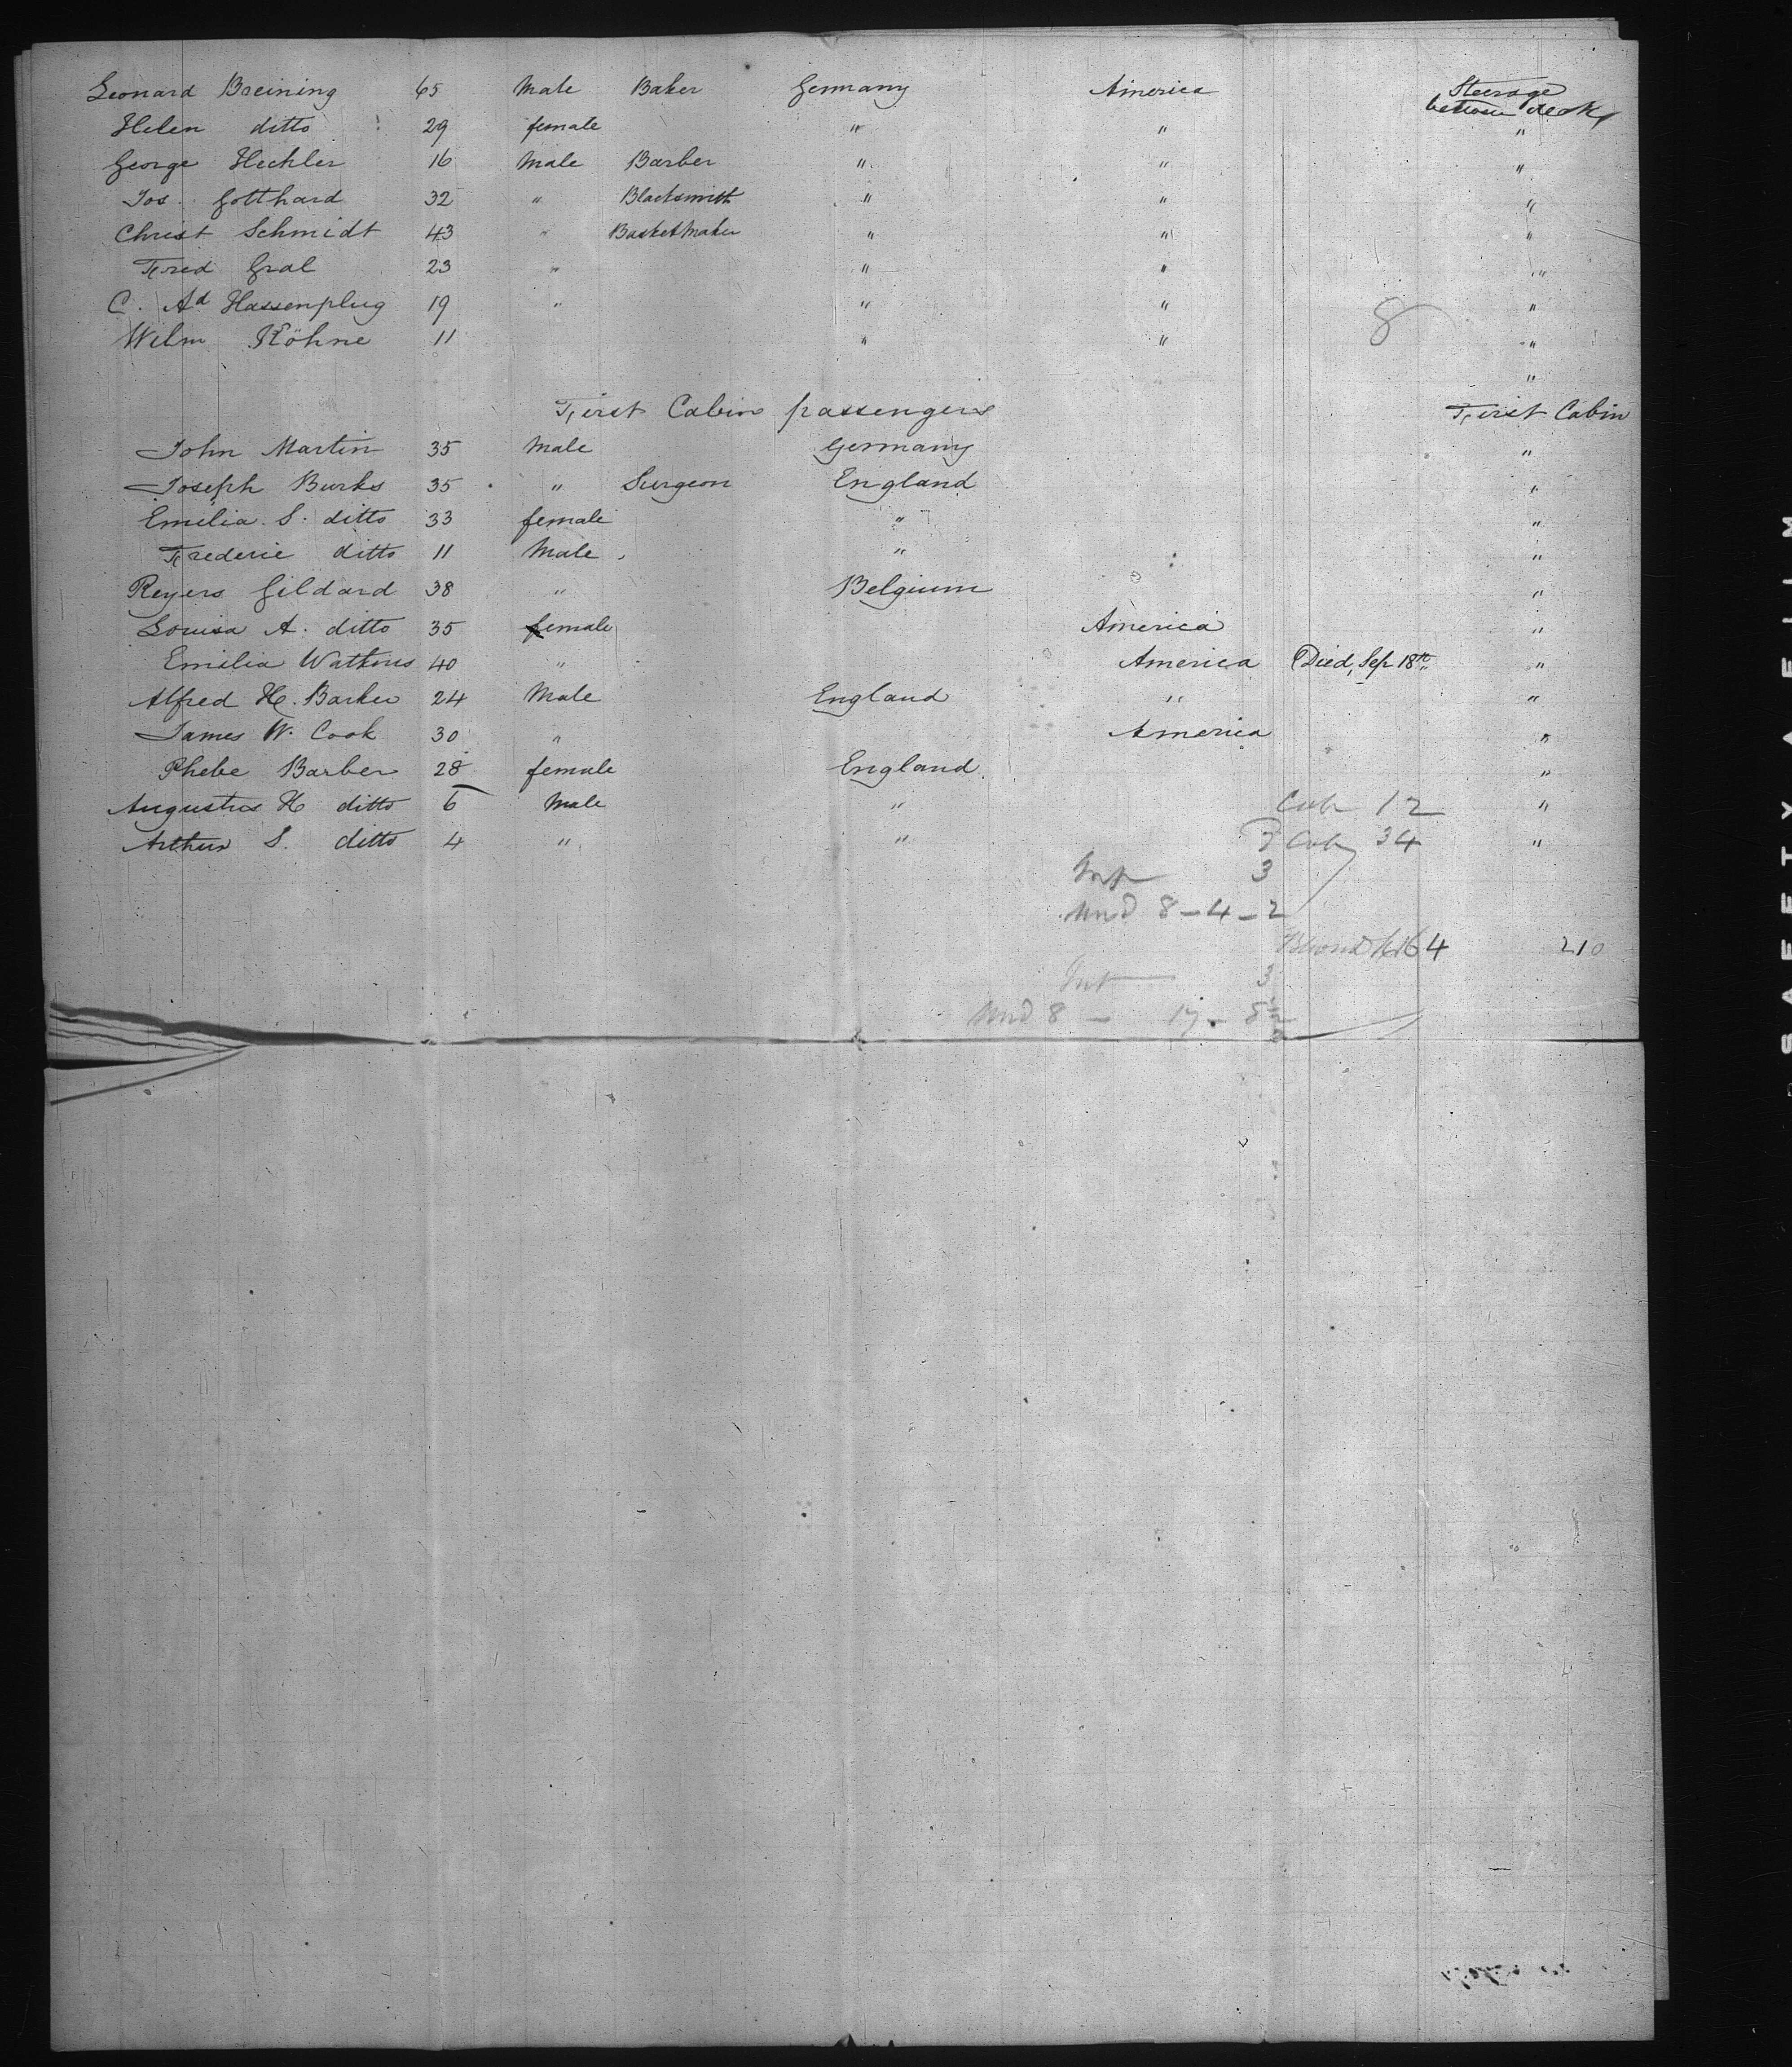 Leonard Breining 65 Male Baker Germany America Steerage
between decks
Helen ditto 29 female " " "
George Hechler 16 Male Barber " " "
Jos. Gotthard 32 " Blacksmith " " "
Christ Schmidt 43 " Basketmaker " " "
Fred Gral 23 " " " "
C. Ad Hassenplug 19 " " " "
Wilm Köhne 11 " " 8 "
"
First Cabin passengers First Cabin
John Martin 35 Male Germany "
Joseph Burks 35 " Surgeon England "
Emilia S. ditto 33 female " "
Frederic ditto 11 Male " "
Reyers Gildard 38 " Belgium "
Louisa A. ditto 35 female America "
Emilia Watkins 40 " America Died, Sep 18th "
Alfred H. Barker 24 Male England " "
James W. Cook 30 " America "
Phebe Barber 28 female England "
Augustus H ditto 6 Male " Cab 12 "
Arthur S. ditto 4 " " Cab 34 "
3
8-4-2
164 210
3
8 - 17 -